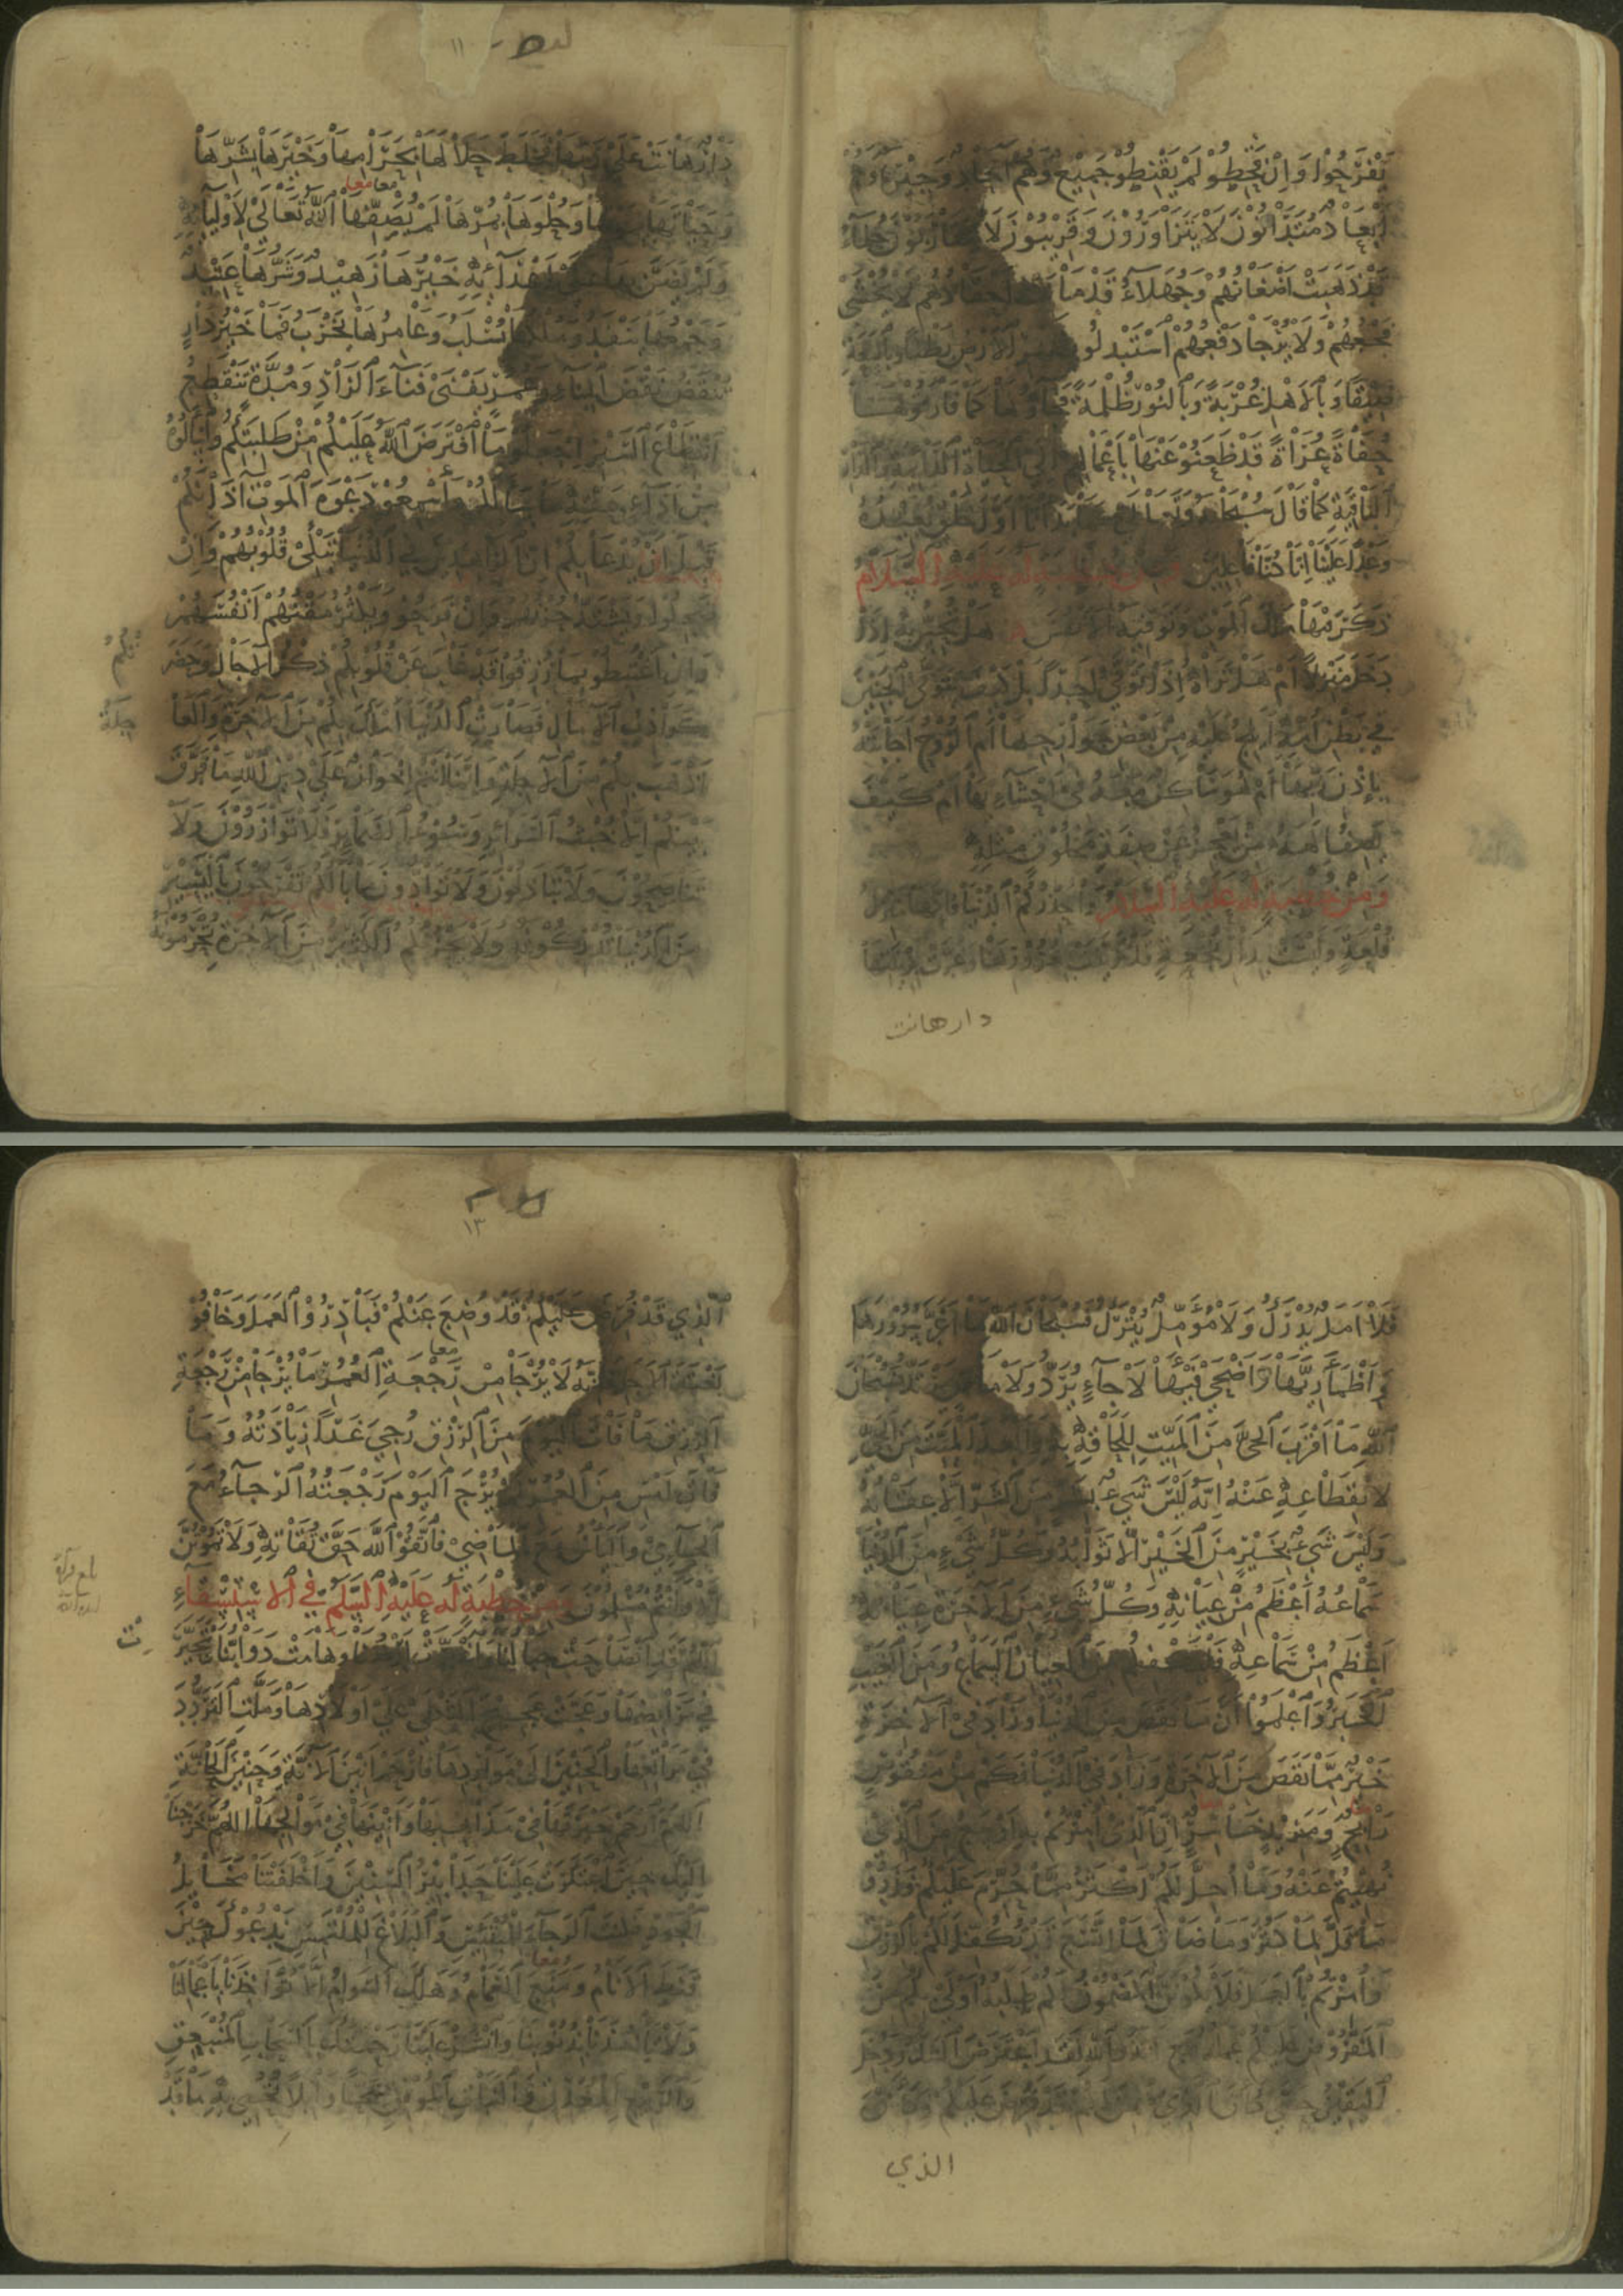 يفرحوا وان قحطوا لم يقنطوا جميع وهم آحاد وجيرة وهم
ابعاد متدانون لا يتزاورون وقريبون لا يتقاربون حلماء
قد ذهبت اضغانهم وجهلاء قد ماتت احقادهم لا يخشى
فجعهم ولا يرجا دفعهم استبدلوا بظهر الارض بطنا وبالسعة
ضيقا وبالاهل غربة وبالنور ظلمة فجاؤها كما فارقوها
حفاة عراة قد ظعنوا عنها باعمالهم الى الحياة الدائمة والدار
الباقية كما قال سبحانه وتعالى كما بدأنا اول خلق نعيده
وعدا علينا انا كنا فاعلين ومن خطبة له عليه السلام
ذكر فيها ملك الموت وتوفية الانفس هل تحس به اذا
دخل منزلا ام هل تراه اذا توفى احدا بل كيف يتوفى الجنين
في بطن امه ايلج عليه من بعض جوارحها ام الروح اجابته
باذن ربها ام هو ساكن معه في احشائها ام كيف
يصف الهه من يعجز عن صفة مخلوق مثله
ومن خطبة له عليه السلام واحذركم الدنيا فانها منزل
قلعة وليست بدار نجعة قد تزينت بغرورها وغرت بزينتها
دار هانت
١١
دار هانت على ربها فخلط حلالها بحرامها وخيرها بشرها
معا معا
وحياتها بموتها وحلوها بمرها لم يصفها الله تعالى لاوليائه
ولم يضن بها على اعدائه خيرها زهيد وشرها عتيد
وجمعها ينفد وملكها يسلب وعامرها يخرب فما خير دار
تنقض نقض البناء وعمر يفنى فناء الزاد ومدة تنقطع
انقطاع السير اجعلوا ما افترض الله عليكم من طلبتكم واسألوه
من اداء حقه ما سألكم واسمعوا دعوة الموت آذانكم
قبل ان يدعا بكم ان الزاهدين في الدنيا تبكي قلوبهم وان
ضحكوا ويشتد حزنهم وان فرحوا ويكثر مقتهم انفسهم
وان اغتبطوا بما رزقوا قد غاب عن قلوبكم ذكر الآجال وحضر
كواذب الآمال فصارت الدنيا املك بكم من الآخرة والعا
اذهب بكم من الآجلة وانما انتم اخوان على دين الله ما فرق
بينكم الا خبث السرائر وسوء الضمائر فلا توازرون ولا
تناصحون ولا تباذلون ولا توادون ما بالكم تفرحون باليسير
من الدنيا تدركونه ولا يحزنكم الكثير من الآخرة تحرمونه
فلا امل يدرك ولا مؤمل يترك فسبحان الله ما اغر سرورها
واظمأ ريها واضحى فيئها لا جاء يرد ولا ماض يرتد فسبحان
الله ما اقرب الحي من الميت للحاقه به وابعد الميت من الحي
لانقطاعه عنه انه ليس شيء بشر من الشر الا عقابه
وليس شيء بخير من الخير الا ثوابه وكل شيء من الدنيا
سماعه اعظم من عيانه وكل شيء من الآخرة عيانه
اعظم من سماعه فليكفكم من العيان السماع ومن الغيب
الخبر واعلموا ان ما نقص من الدنيا وزاد في الآخرة
خير مما نقص من الآخرة وزاد في الدنيا فكم من منقوص
رابح ومزيد خاسر ان الذي امرتم به اوسع من الذي
نهيتم عنه وما احل لكم اكثر مما حرم عليكم فذروا
ما قل لما كثر وما ضاق لما اتسع قد تكفل لكم بالرزق
وامرتم بالعمل فلا يكونن المضمون لكم طلبه اولى بكم من
المفروض عليكم عمله مع انه والله لقد اعترض الشك ودخل
اليقين حتى كان الذي ضمن لكم قد فرض عليكم وكان
الذي
١٣
الذي قد فرض عليكم قد وضع عنكم فبادروا العمل وخافوا
معا
بغتة الاجل فانه لا يرجا من رجعة العمر ما يرجا من رجعة
الرزق ما فات اليوم من الرزق رجي غدا زيادته وما
فات امس من العمر لم يرج اليوم رجعته الرجاء مع
الجائي والياس مع الماضي فاتقوا الله حق تقاته ولا تموتن
الا وانتم مسلمون ومن خطبة له عليه السلم في الاستسقاء
اللهم قد انصاحت جبالنا واغبرت ارضنا وهامت دوابنا وتحيرت
في مرابضها وعجت عجيج الثكلى على اولادها وملت التردد
في مراتعها والحنين الى مواردها فارحم انين الآنة وحنين الحانة
اللهم ارحم حيرتها في مذاهبها وانينها في موالجها اللهم خرجنا
اليك حين اعتكرت علينا حدابير السنين واخلفتنا مخايل
الجود فكنت الرجاء للمبتئس والبلاغ للملتمس ندعوك حين
معا
قنط الانام ومنع الغمام وهلك السوام الا تؤاخذنا باعمالنا
ولا تاخذنا بذنوبنا وانشر علينا رحمتك بالسحاب المنبعق
والربيع المغدق والنبات المونق سحا وابلا تحيي به ما قد